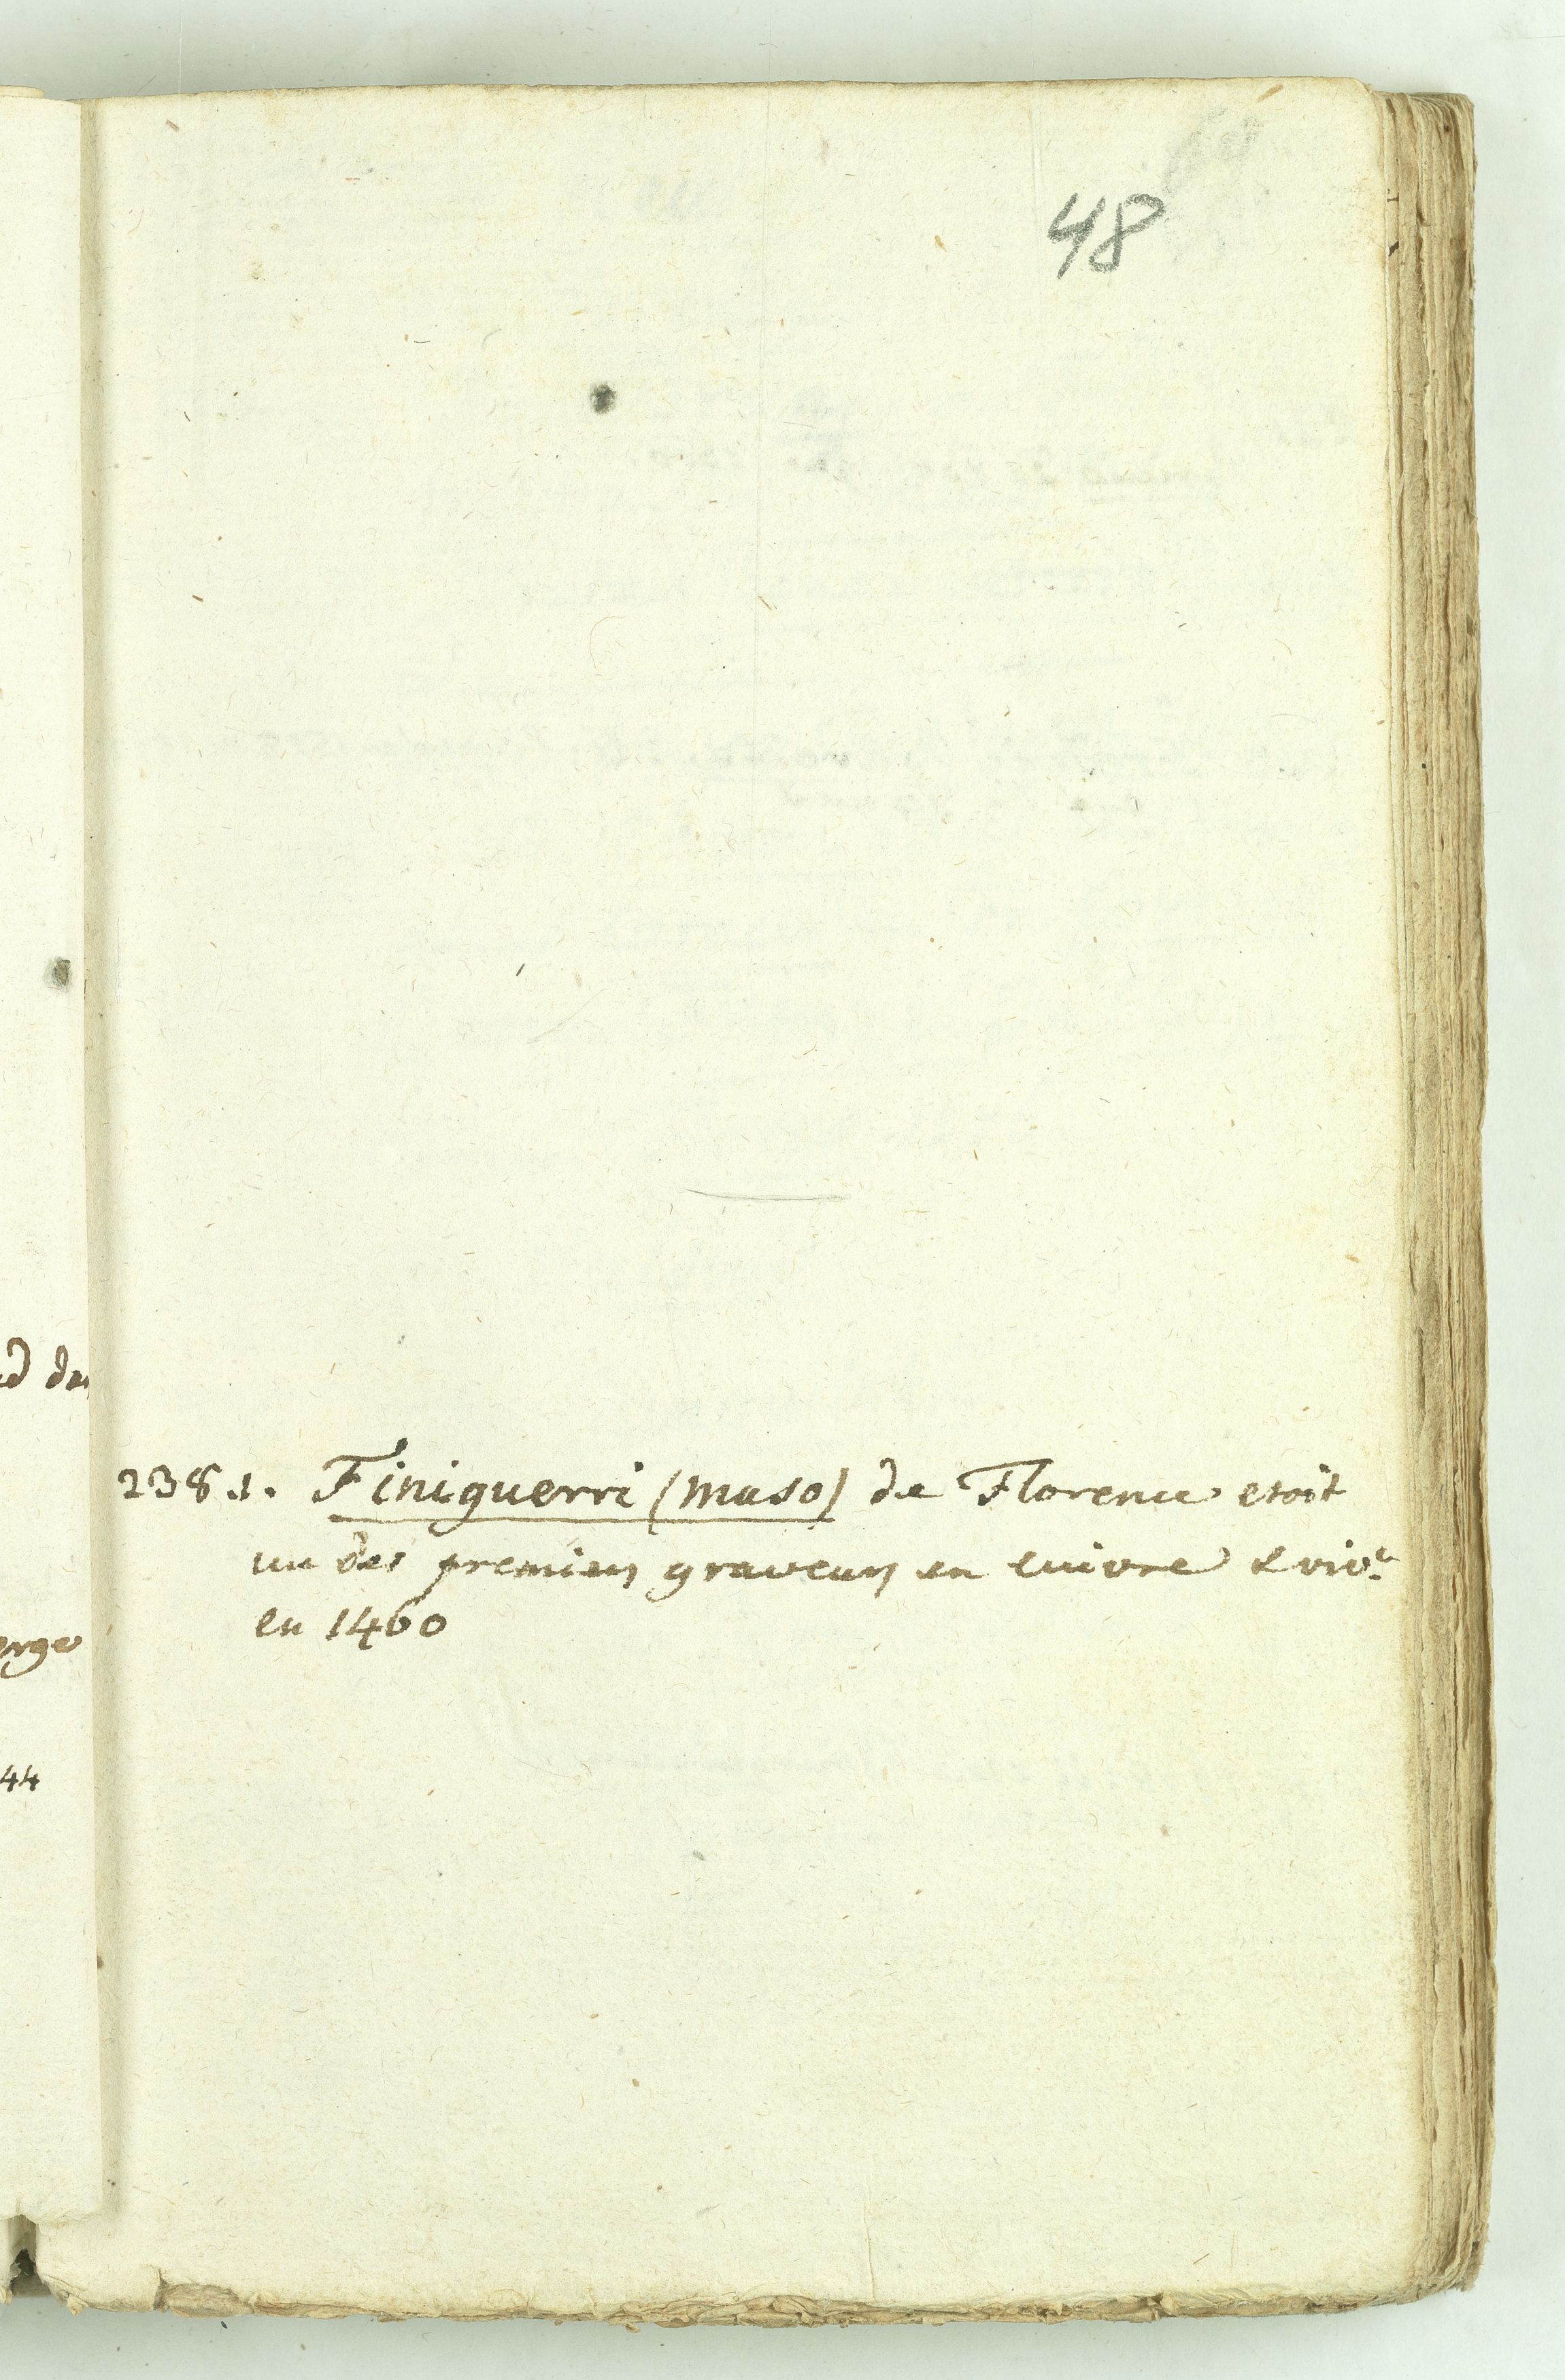 48
238.1. Finiguerri (Maso) de Florence etoit
un des premiers graveurs en cuivre & viv.t
en 1460
44